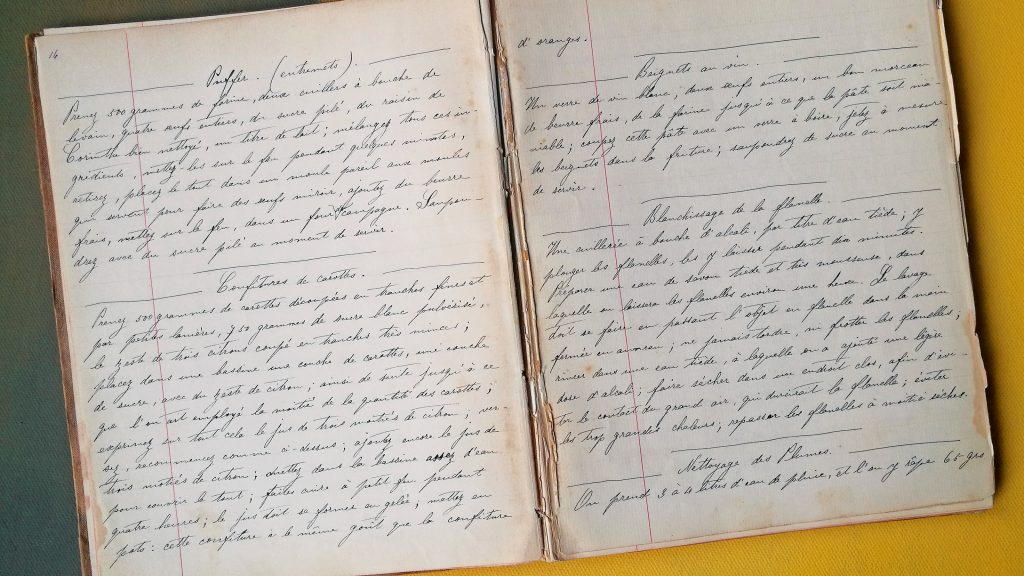 16
Puffer. (entremets).
Prenez 500 grammes de farine, deux cuillers à bouche de
levain, quatre œufs entiers, du sucre pilé, du raisin de
Corinthe bien nettoyé, un litre de lait; mélangez tous ces in-
grédients, mettez-les sur le feu pendant quelques minutes,
retirez, placez le tout dans un moule pareil aux moules
qui servent pour faire des œufs miroir, ajoutez du beurre
frais, mettez sur le feu, dans un four de campagne. Saupou-
drez avec du sucre pilé au moment de servir.
Confitures de carottes.
Prenez 500 grammes de carottes découpées en tranches fines et
par petites lanières, 750 grammes de sucre blanc pulvérisé,
le zeste de trois citrons coupé en tranches très minces;
placez dans une bassine une couche de carottes, une couche
de sucre, avec du zeste de citron; ainsi de suite jusqu'à ce
que l'on ait employé la moitié de la quantité des carottes;
exprimez sur tout cela le jus de trois moitiés de citron; ver-
sez, recommencez comme ci-dessus; ajoutez encore le jus de
trois moitiés de citron; mettez dans la bassine assez d'eau
pour couvrir le tout; faites cuire à petit feu pendant
quatre heures; le jus doit se former en gelée; mettez en
pots: cette confiture a le même goût que la confiture
d'oranges.
Beignets au vin.
Un verre de vin blanc, deux œufs entiers, un bon morceau
de beurre frais, de la farine jusqu'à ce que la pâte soit ma-
niable; coupez cette pâte avec un verre à boire, jetez à mesure
les beignets dans la friture; saupoudrez de sucre au moment
de servir.
Blanchissage de la flanelle.
Une cuillerée à bouche d'alcali, par litre d'eau tiède; y
plonger les flanelles, les y laisser pendant dix minutes.
Préparer une eau de savon tiède et très mousseuse, dans
laquelle on laissera les flanelles environ une heure. Le lavage
doit se faire en passant l'objet en flanelle dans la main
fermée en anneau; ne jamais tordre, ni frotter les flanelles;
rincer dans une eau tiède, à laquelle on a ajouté une légère
dose d'alcali; faire sécher dans un endroit clos, afin d'évi-
ter le contact du grand air, qui durcirait la flanelle; éviter
les trop grandes chaleurs; repasser les flanelles à moitié sèches.
Nettoyage des Plumes.
On prend 3 à 4 litres d'eau de pluie, et l'on y râpe 65 grs